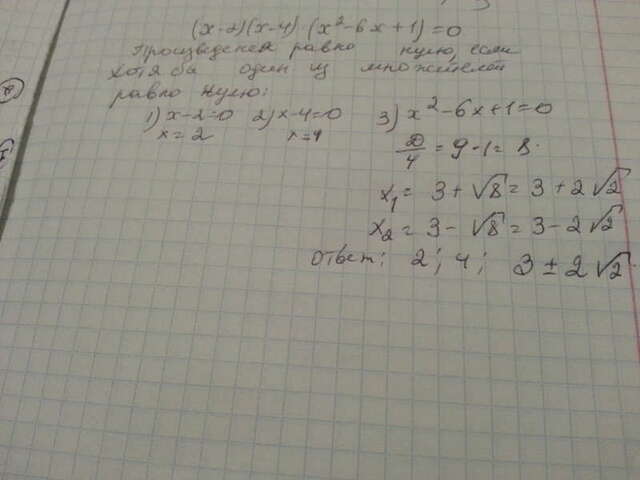 (x-2)(x-4)·(x²-6x+1)=0
Произведение равно нулю, если
хотя ба один из множителей
равно нулю:
1) x-2=0 2) x-4=0 3) x²-6x+1=0
x=2 x=4
D/4 = 9-1= 8.
x₁= 3+√8= 3+2√2
x₂= 3-√8= 3-2√2
Ответ: 2; 4; 3±2√2.